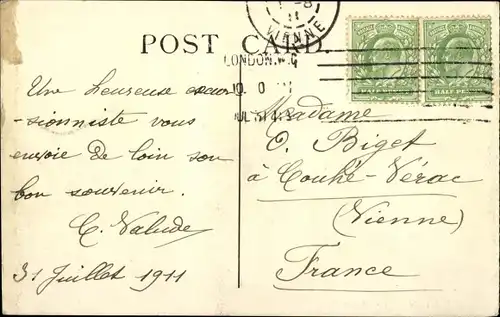 VIENNE
POST CARD.
LONDON.W.C
JUL 31 11
HALF PENNY
Une heureuse excur
sionniste vous
envoie de loin son
bon souvenir.
C. Valude
31 Juillet 1911
Madame
C. Biget
à Couhé-Vérac
(Vienne)
France